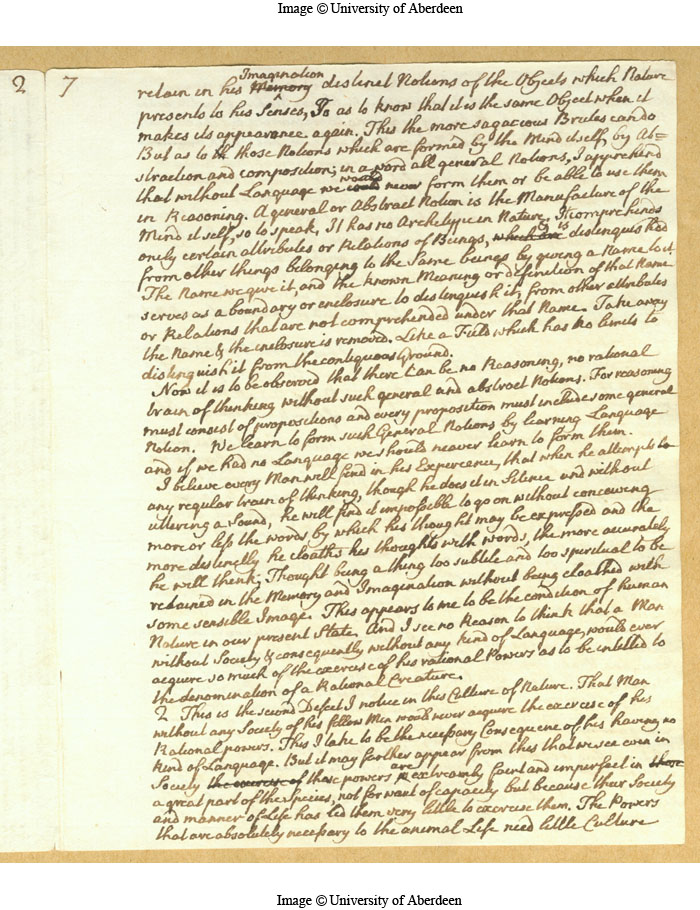 Image © University of Aberdeen
2 7
Imagination
retain in his Memory distinct Notions of the Objects which Nature
presents to his Senses, So as to know that it is the same Object when it
makes its appearance again. This the more sagacious Brutes can do
But as to those Notions which are formed by the Mind itself, by Ab=
straction and composition; in a word all general Notions, I apprehend
would
that without Language we could never form them or be able to use them
in Reasoning. A general or Abstract Notion is the Manufacture of the
Mind it self, so to speak, It has no Archetype in Nature, It comprehends
is
onely certain attributes or Relations of Beings, which are distinguished
from other things belonging to the Same beings by giving a Name to it
The Name we give it, and the known Meaning or definition of that Name
serves as a boundary or enclosure to distinguish it, from other attributes
or Relations that are not comprehended under that Name. Take away
the Name & the inclosure is removed. Like a Field which has no limits to
distinguish it from the contiguous Ground.
Now it is to be observed that there can be no Reasoning, no rational
train of thinking without such general and abstract Notions. For reasoning
must consist of propositions and every proposition must include some general
Notion. We learn to form such General Notions by learning Language
and if we had no Language we should neaver learn to form them.
I believe every Man will find in his Experience, that when he attempts to
any regular train of thinking, though he does it in Silence and without
uttering a Sound, he will find it impossible to go on without conceiving
more or less the words by which his thought may be expressed and the
more distinctly he cloaths his thoughts with words, the more accurately
he will think; Thought being a thing too subtile and too spiritual to be
retained in the Memory and Imagination without being cloathed with
some sensible Image. This appears to me to be the condition of human
Nature in our present State. And I see no Reason to think that a Man
without Society & consequently without any kind of Language, would ever
acquire so much of the exercise of his rational Powers as to be intitled to
the denomination of a Rational Creature.
2 This is the second Defect I notice in this Culture of Nature. That Man
without any Society of his fellow Men would never acquire the exercise of his
Rational powers. This I take to be the necessary Consequence of his having no
kind of Language. But it may farther appear from this that we see even in
are
Society the exercise of these powers extreamly faint and imperfect in those
a great part of the Species, not for want of capacity but because their Society
and manner of Life has led them very little to exercise them. The Powers
that are absolutely necessary to the animal Life need little Culture
Image © University of Aberdeen